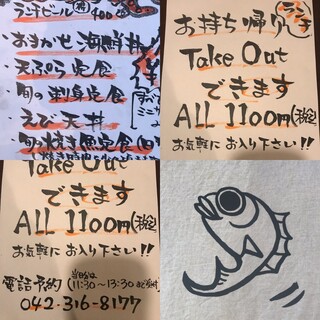 ランチビール 400
・おまかせ海鮮丼
・天ぷら定食
・旬の刺身定食
・えび天丼
・旬の焼き魚定食
お持ち帰り ランチ
Take Out
できます
ALL 1100円(税込)
お気軽にお入り下さい!!
Take Out
できます
ALL 1100円(税込)
お気軽にお入り下さい!!
電話予約(当日分は11:30~13:30まで受付)
042-316-8177